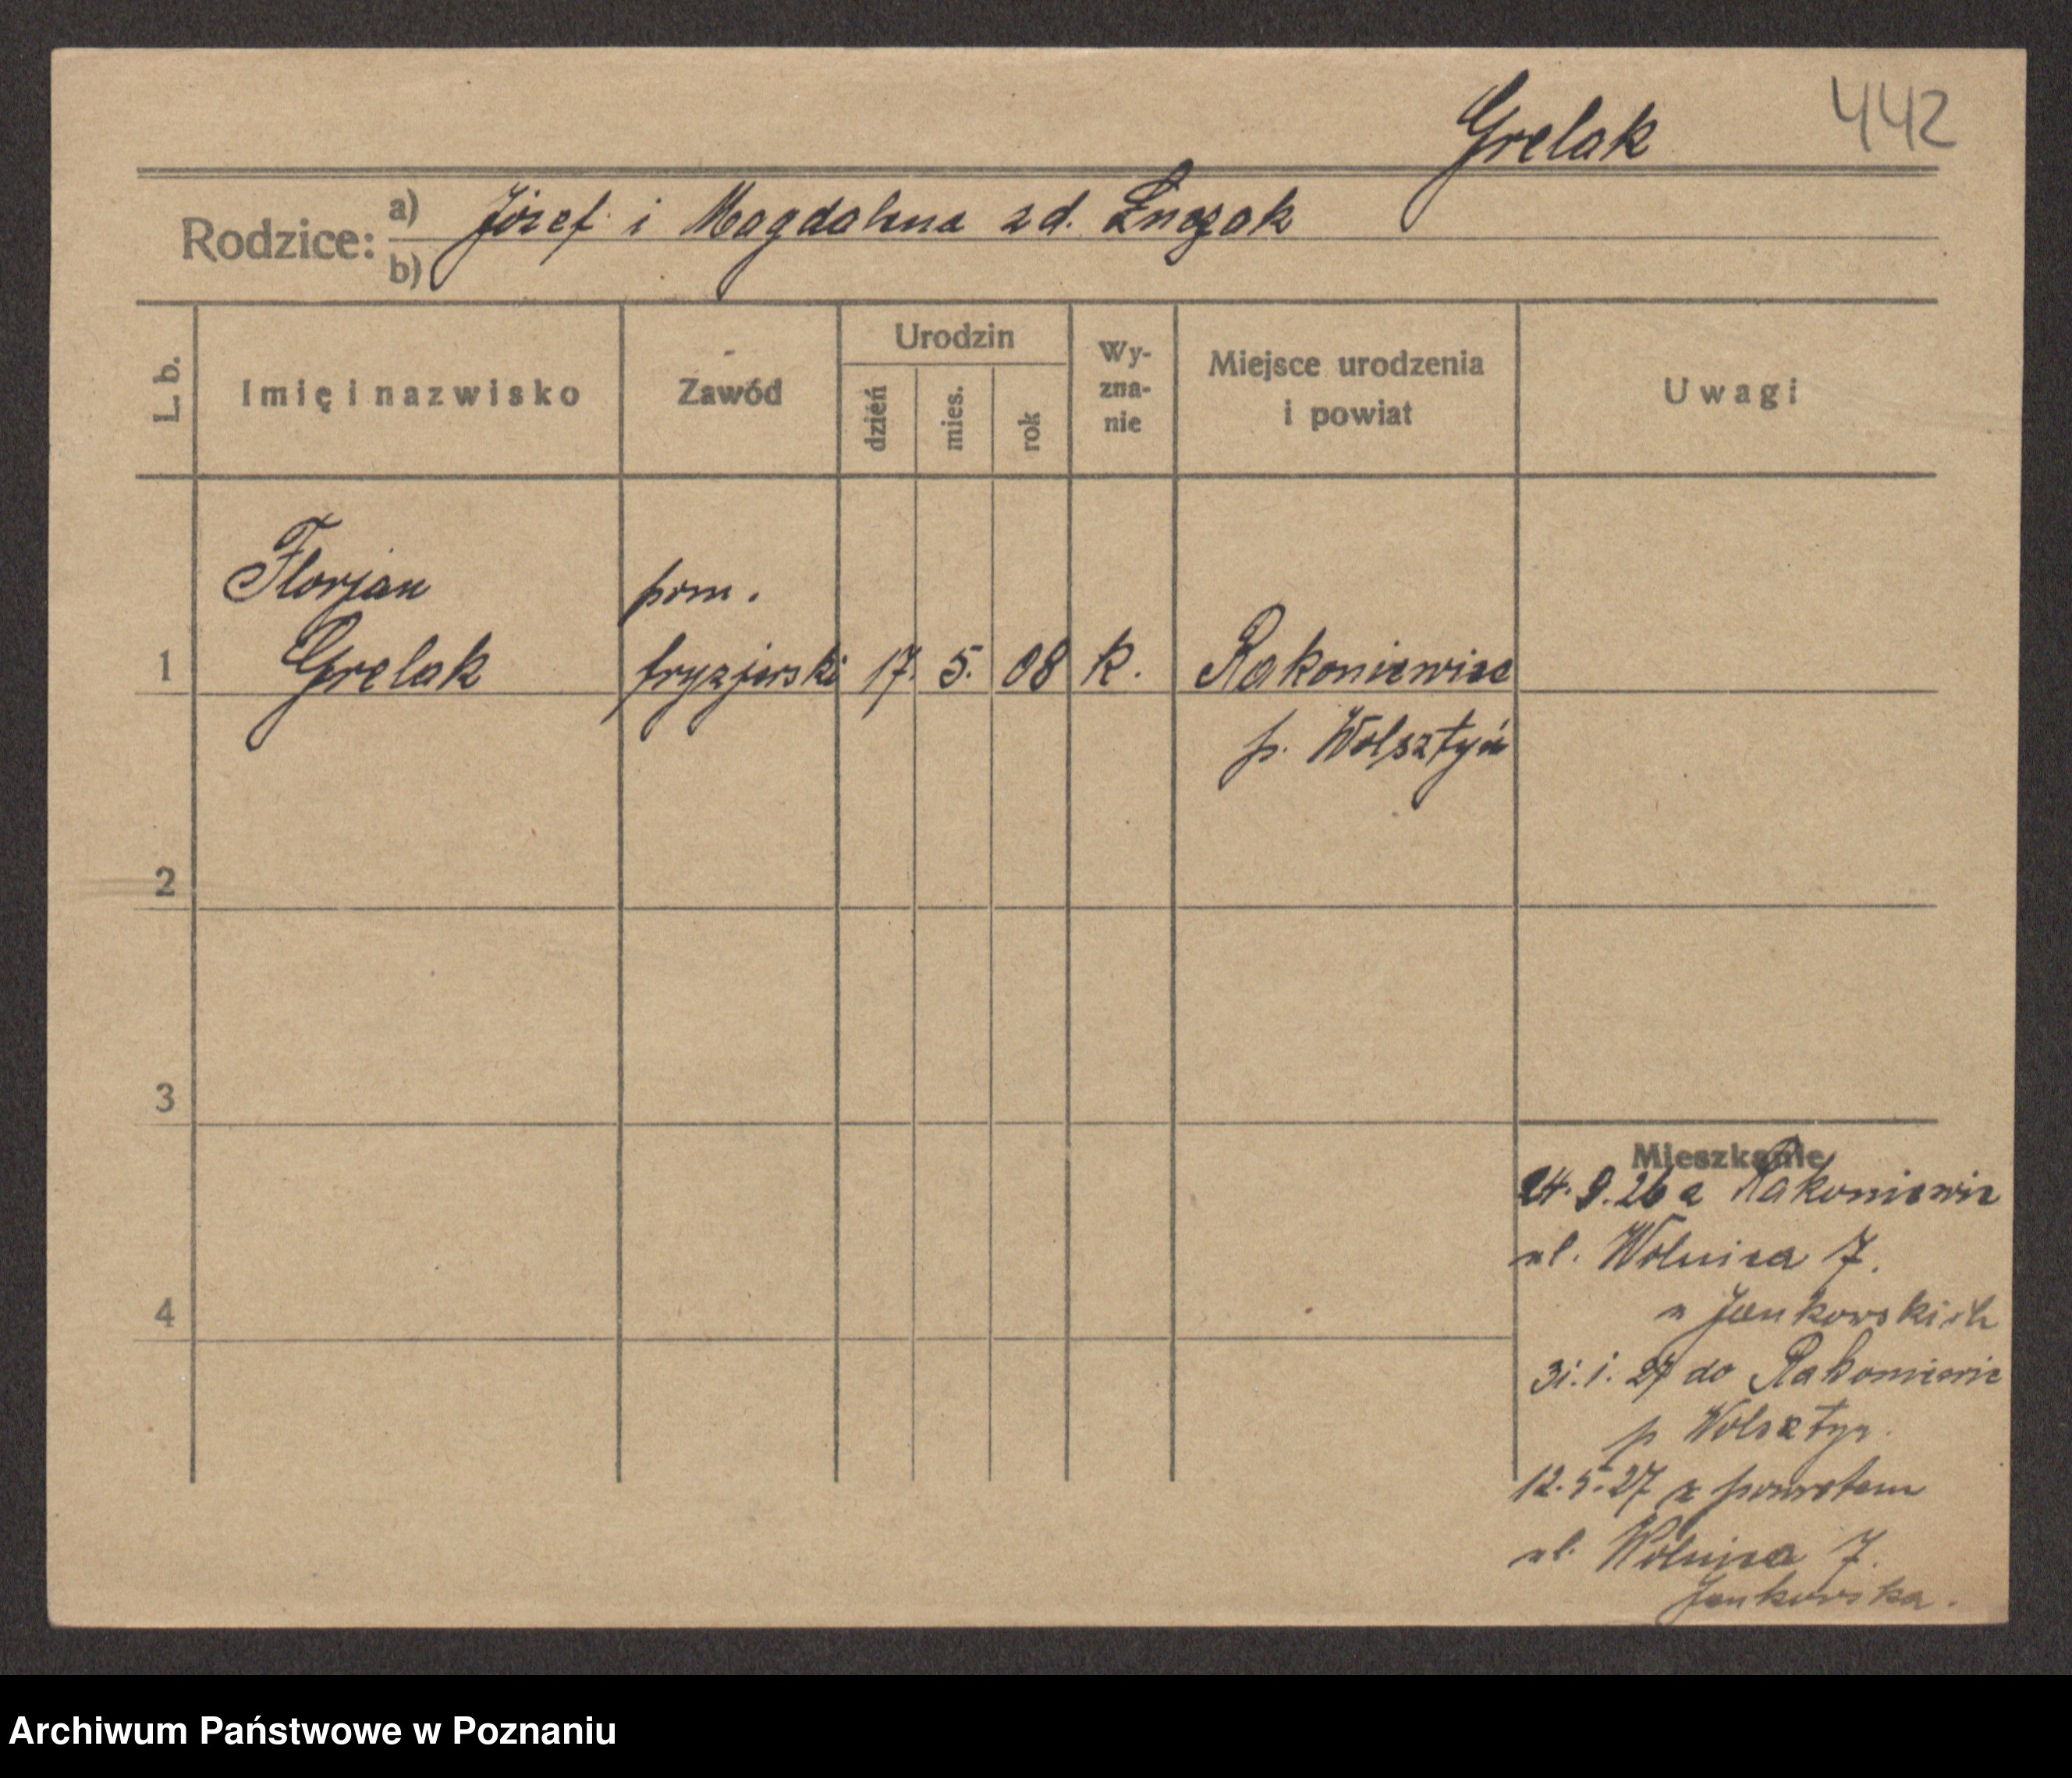 Grelak 442
Rodzice: a) Józef i Magdalena zd.
b)
L. b. Imię i nazwisko Zawód Urodzin dzień mies. rok Wy-zna-nie Miejsce urodzenia i powiat Uwagi
Florjan pom.
1 Grelak fryzjerski 17. 5. 08 k. Rakoniewice
p. Wolsztyń
2
3
Mieszkanie
24. 9. 26 z Rakoniewic
ul. Wolnica 7.
u Jankowskich
4
31. 1. 27 do Rakoniewic
p Wolsztyn.
12. 5. 27 z powrotem
ul. Wolnica 7.
Jankowska.
Archiwum Państwowe w Poznaniu